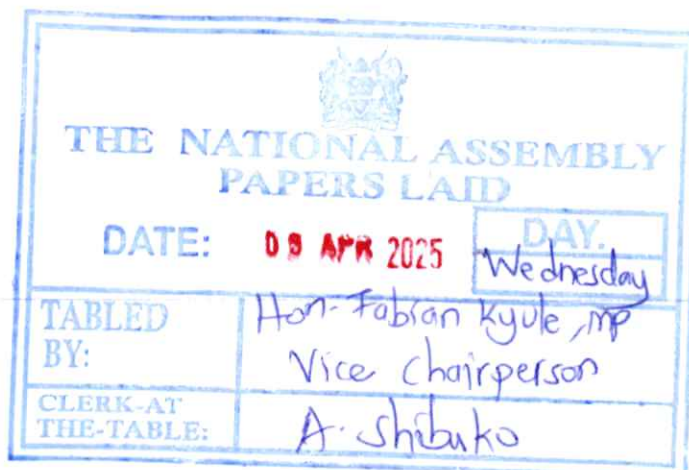 THE NATIONAL ASSEMBLY
PAPERS LAID
DATE: 09 APR 2025
DAY.
Wednesday
TABLED BY:
Hon. Fabian Kyule, MP
Vice Chairperson
CLERK-AT
THE-TABLE:
A. Shibuko